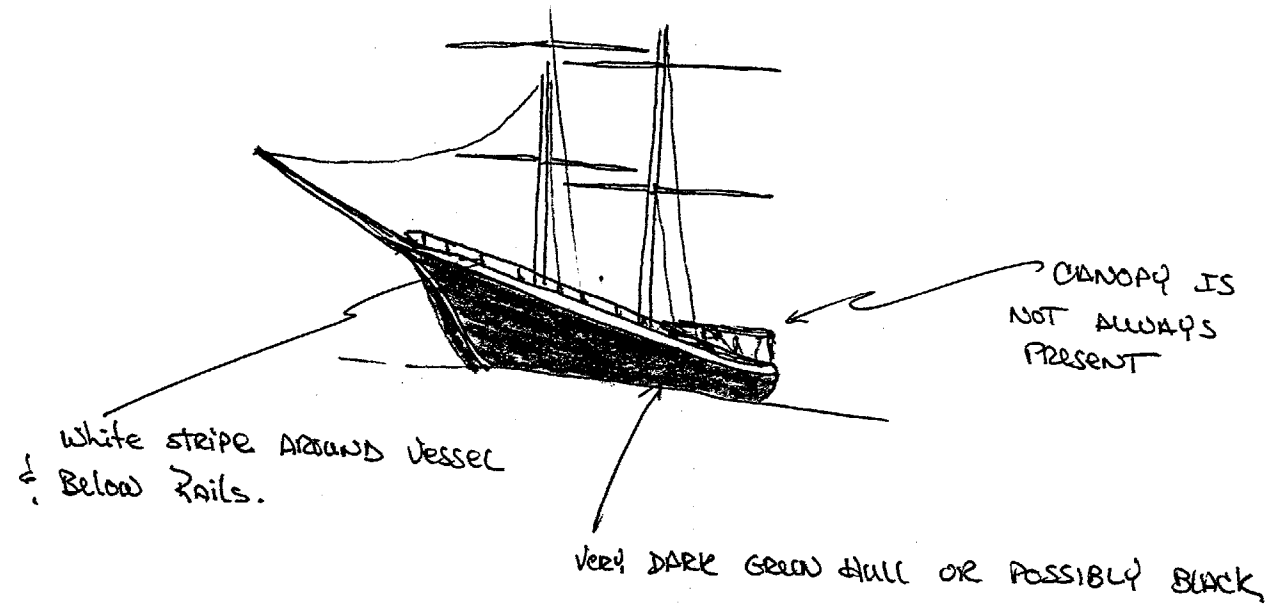 CANOPY IS
NOT ALWAYS
PRESENT
White STRIPE AROUND Vessel
& Below Rails.
Very DARK GREEN Hull OR POSSIBLY BLACK